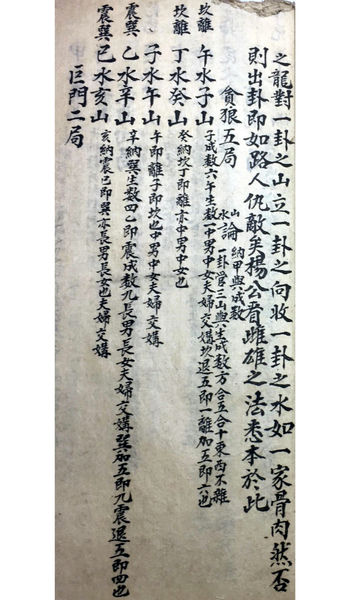 之龍對一卦之山立一卦之向收一卦之水如一家骨肉然否
則出卦即如路人仇敵矣揚公看雌雄之法悉本於此
貪狼五局
山水論 納甲與成數
一卦管三山與生成數方合五合十東西不雜
坎離 午水子山 子成數六午生數一中男中女夫婦交媾坎退五即一離加五即六也
坎離 丁水癸山 癸納坎丁即離亦中男中女也
子水午山 午即離子即坎也中男中女夫婦交媾
震巽 乙水辛山 辛納巽生數四乙即震成數九長男長女夫婦交媾巽加五即九震退五即四也
震巽 巳水亥山 亥納震巳即巽亦長男長女也夫婦交媾
巨門二局